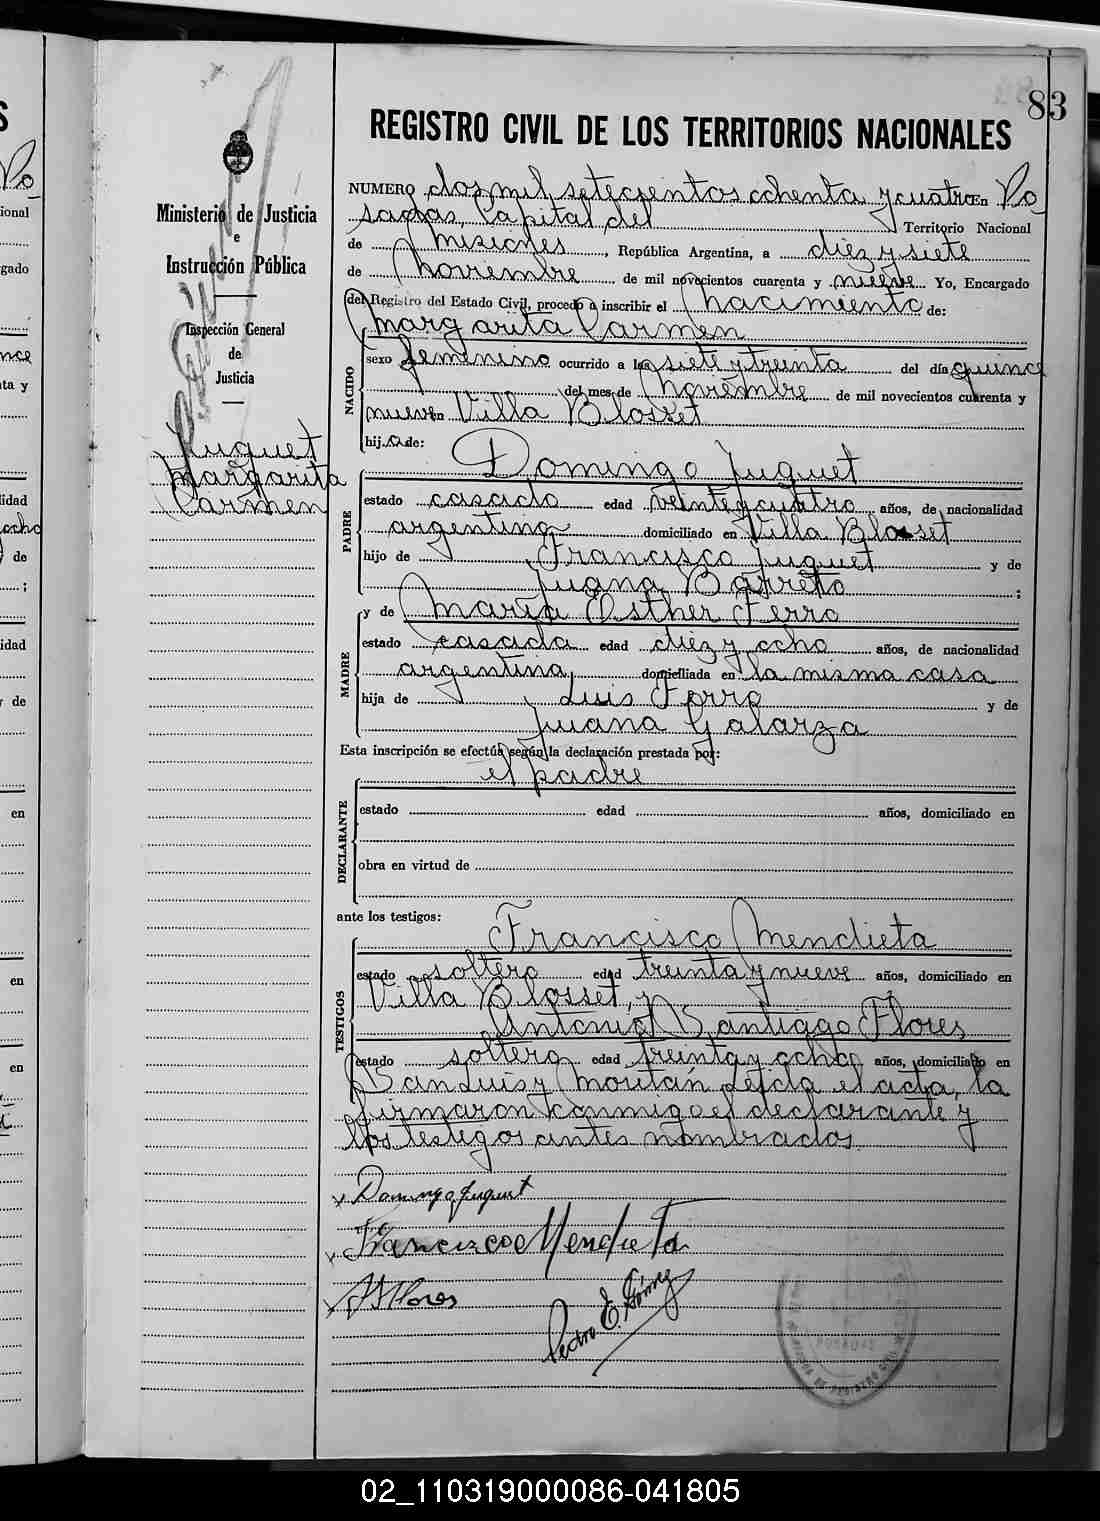 83
REGISTRO CIVIL DE LOS TERRITORIOS NACIONALES
Ministerio de Justicia
e
Instrucción Pública
Inspección General
de
Justicia
Juguet
Margarita
Carmen
NUMERO dos mil setecientos ochenta y cuatro En Po
sadas Capital del Territorio Nacional
de Misiones, República Argentina, a diez y siete
de Noviembre de mil novecientos cuarenta y nueve Yo, Encargado
del Registro del Estado Civil, procedo a inscribir el Nacimiento de:
Margarita Carmen
NACIDO
sexo femenino ocurrido a las siete y treinta del día quince
del mes de Noviembre de mil novecientos cuarenta y
nueve en Villa Blosset
hija de: Domingo Juguet
PADRE
estado casado edad veinte y cuatro años, de nacionalidad
argentina domiciliado en Villa Blosset
hijo de Francisco Juguet y de
Juana Barreto ;
MADRE
y de María Esther Ferro
estado casada edad diez y ocho años, de nacionalidad
argentina, domiciliada en la misma casa
hija de Luis Ferro y de
Juana Galarza
Esta inscripción se efectúa según la declaración prestada por:
el padre
DECLARANTE
estado edad años, domiciliado en
obra en virtud de
ante los testigos:
Francisco Mendieta
TESTIGOS
estado soltero edad treinta y nueve años, domiciliado en
Villa Blosset, y
Antonio Santiago Flores
estado soltero edad treinta y ocho años, domiciliado en
San Luis y Moritán Leida el acta, la
firmaron conmigo el declarante y
los testigos antes nombrados
Domingo Juguet
Francisco Mendieta
A S Flores
Pedro E. Gómez
POSADAS
02_110319000086-041805